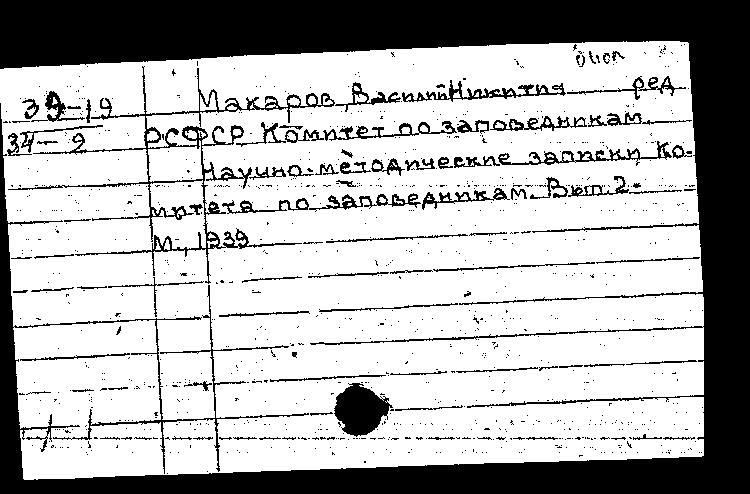 39-19 Макаров, Василий Никитич ред
34-9 РСФСР Комитет по заповедникам.
Научно-методические записки Ко-
митета по заповедникам. Вып. 2.
М., 1939